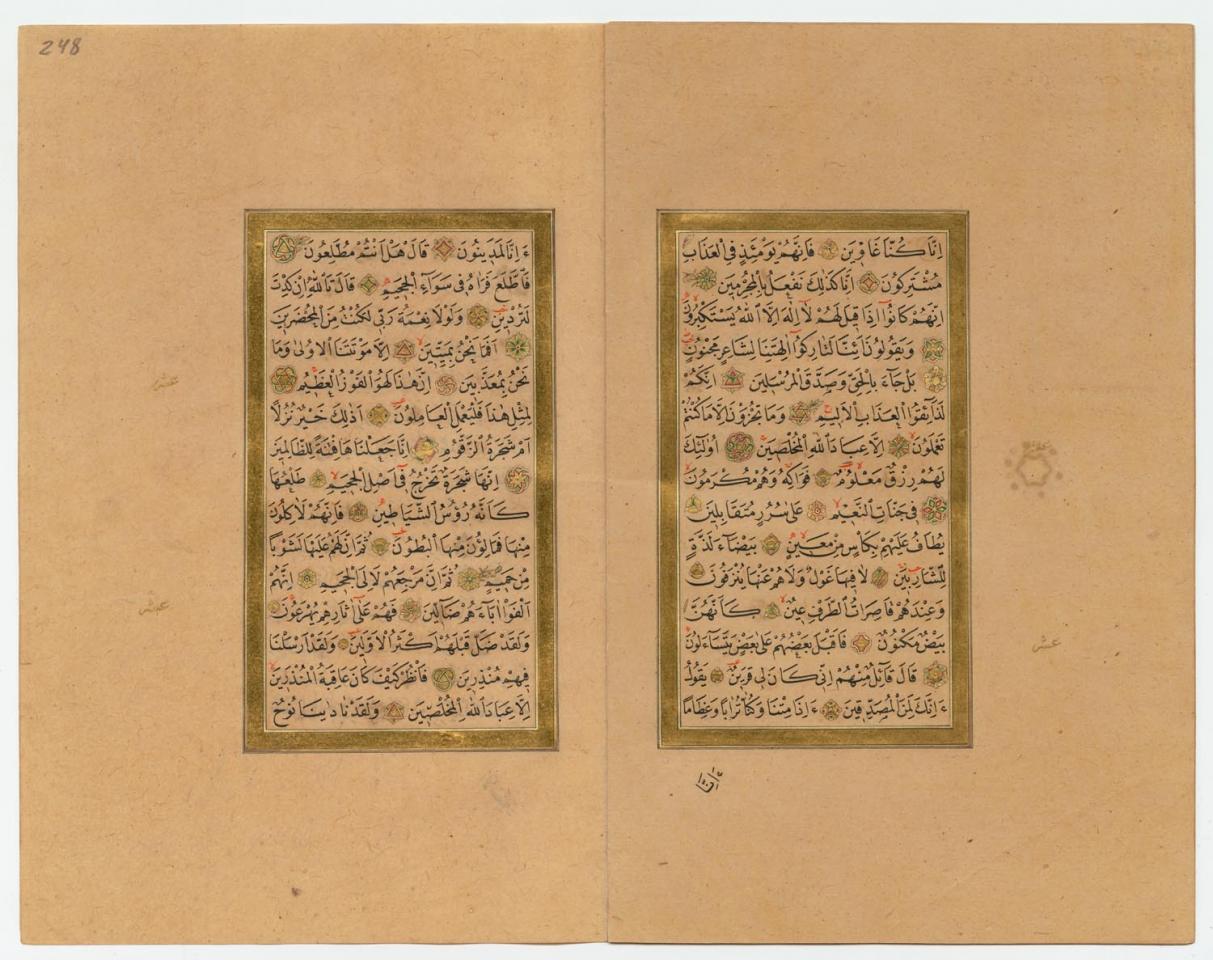 اِنَّا كُنَّا غَاوِينَ فَاِنَّهُمْ يَوْمَئِذٍ فِي الْعَذَابِ
مُشْتَرِكُونَ اِنَّا كَذٰلِكَ نَفْعَلُ بِالْمُجْرِمِينَ
اِنَّهُمْ كَانُوا اِذَا قِيلَ لَهُمْ لَا اِلٰهَ اِلَّا اللّٰهُ يَسْتَكْبِرُونَ
وَيَقُولُونَ اَئِنَّا لَتَارِكُوا اٰلِهَتِنَا لِشَاعِرٍ مَجْنُونٍ
بَلْ جَاءَ بِالْحَقِّ وَصَدَّقَ الْمُرْسَلِينَ اِنَّكُمْ
لَذَائِقُوا الْعَذَابِ الْاَلِيمِ وَمَا تُجْزَوْنَ اِلَّا مَا كُنْتُمْ
تَعْمَلُونَ اِلَّا عِبَادَ اللّٰهِ الْمُخْلَصِينَ اُولٰئِكَ
لَهُمْ رِزْقٌ مَعْلُومٌ فَوَاكِهُ وَهُمْ مُكْرَمُونَ
فِي جَنَّاتِ النَّعِيمِ عَلٰى سُرُرٍ مُتَقَابِلِينَ
يُطَافُ عَلَيْهِمْ بِكَأْسٍ مِنْ مَعِينٍ بَيْضَاءَ لَذَّةٍ
لِلشَّارِبِينَ لَا فِيهَا غَوْلٌ وَلَا هُمْ عَنْهَا يُنْزَفُونَ
وَعِنْدَهُمْ قَاصِرَاتُ الطَّرْفِ عِينٌ كَاَنَّهُنَّ
بَيْضٌ مَكْنُونٌ فَاَقْبَلَ بَعْضُهُمْ عَلٰى بَعْضٍ يَتَسَاءَلُونَ
قَالَ قَائِلٌ مِنْهُمْ اِنِّي كَانَ لِي قَرِينٌ يَقُولُ
ءَاِنَّكَ لَمِنَ الْمُصَدِّقِينَ ءَاِذَا مِتْنَا وَكُنَّا تُرَابًا وَعِظَامًا
ءَاِنَّا
عشر
248
ءَاِنَّا لَمَدِينُونَ قَالَ هَلْ اَنْتُمْ مُطَّلِعُونَ
فَاطَّلَعَ فَرَاٰهُ فِي سَوَاءِ الْجَحِيمِ قَالَ تَاللّٰهِ اِنْ كِدْتَ
لَتُرْدِينِ وَلَوْلَا نِعْمَةُ رَبِّي لَكُنْتُ مِنَ الْمُحْضَرِينَ
اَفَمَا نَحْنُ بِمَيِّتِينَ اِلَّا مَوْتَتَنَا الْاُولٰى وَمَا
نَحْنُ بِمُعَذَّبِينَ اِنَّ هٰذَا لَهُوَ الْفَوْزُ الْعَظِيمُ
لِمِثْلِ هٰذَا فَلْيَعْمَلِ الْعَامِلُونَ اَذٰلِكَ خَيْرٌ نُزُلًا
اَمْ شَجَرَةُ الزَّقُّومِ اِنَّا جَعَلْنَاهَا فِتْنَةً لِلظَّالِمِينَ
اِنَّهَا شَجَرَةٌ تَخْرُجُ فِي اَصْلِ الْجَحِيمِ طَلْعُهَا
كَاَنَّهُ رُؤُسُ الشَّيَاطِينِ فَاِنَّهُمْ لَاٰكِلُونَ
مِنْهَا فَمَالِؤُنَ مِنْهَا الْبُطُونَ ثُمَّ اِنَّ لَهُمْ عَلَيْهَا لَشَوْبًا
مِنْ حَمِيمٍ ثُمَّ اِنَّ مَرْجِعَهُمْ لَاِلَى الْجَحِيمِ اِنَّهُمْ
اَلْفَوْا اٰبَاءَهُمْ ضَالِّينَ فَهُمْ عَلٰى اٰثَارِهِمْ يُهْرَعُونَ
وَلَقَدْ ضَلَّ قَبْلَهُمْ اَكْثَرُ الْاَوَّلِينَ وَلَقَدْ اَرْسَلْنَا
فِيهِمْ مُنْذِرِينَ فَانْظُرْ كَيْفَ كَانَ عَاقِبَةُ الْمُنْذَرِينَ
اِلَّا عِبَادَ اللّٰهِ الْمُخْلَصِينَ وَلَقَدْ نَادٰينَا نُوحٌ
عشر
عشر